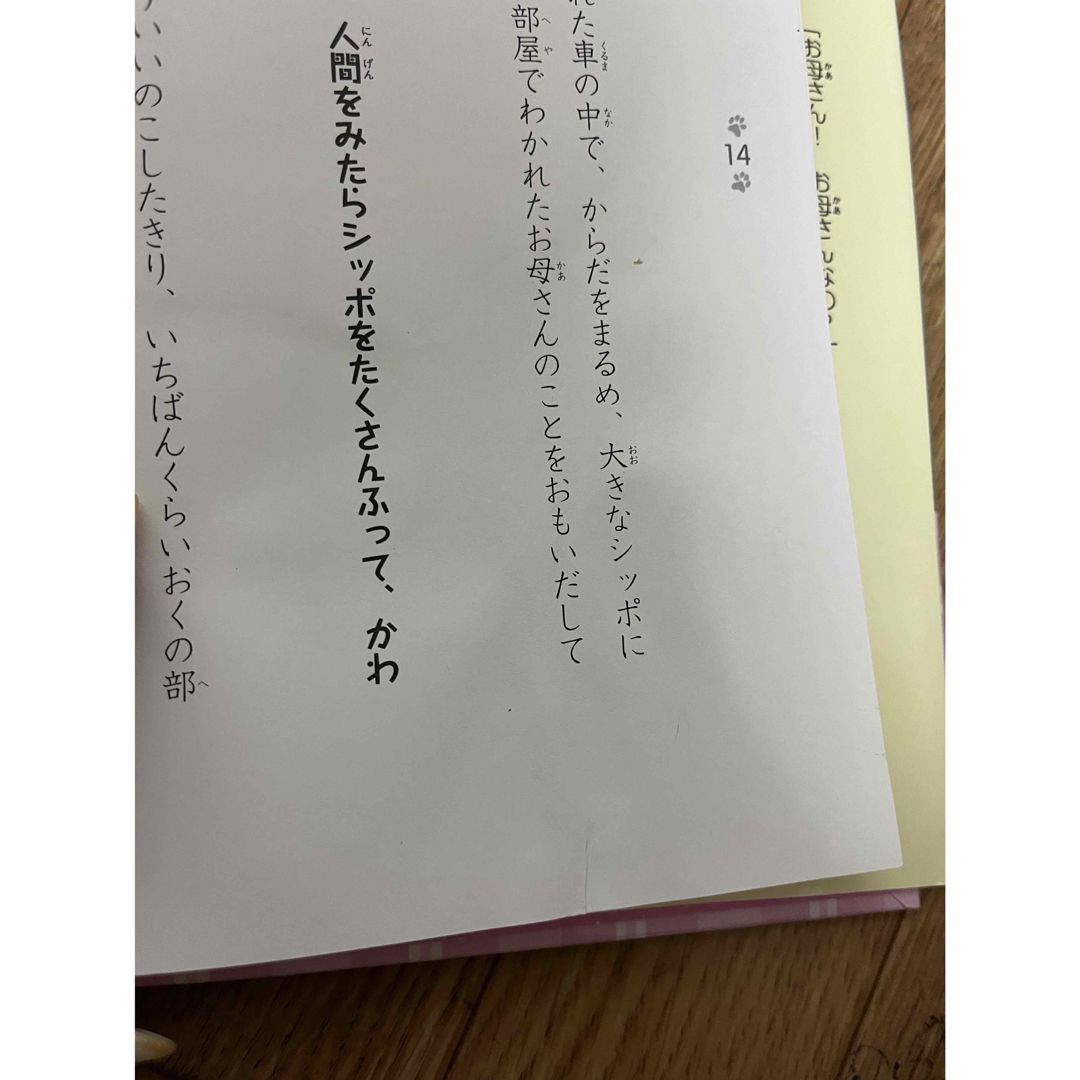 「お母さん！　お母さんなの？」
14
れた車の中で、からだをまるめ、大きなシッポに
部屋でわかれたお母さんのことをおもいだして
人間をみたらシッポをたくさんふって、かわ
いいのこしたきり、いちばんくらいおくの部